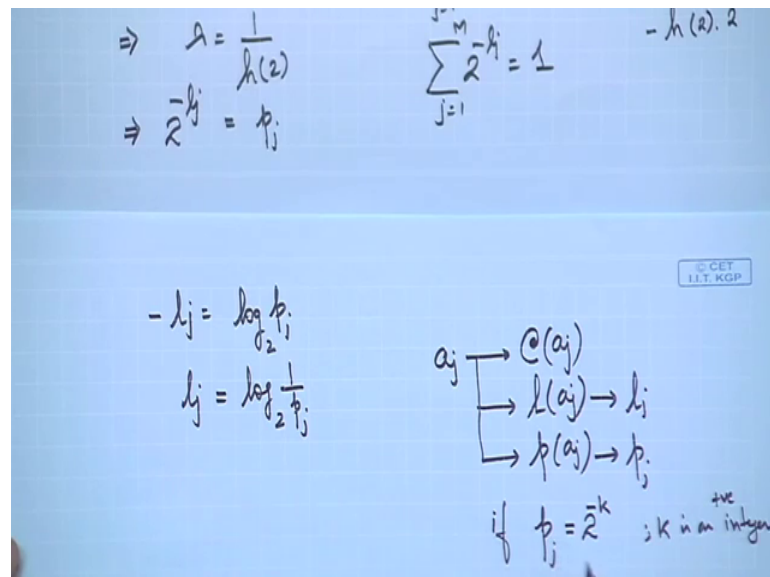 ⇒ λ = 1/ln(2)
M
∑ 2^{-lj} = 1
j=1
- ln(2). 2
⇒ 2^{-lj} = pj
© CET
I.I.T. KGP
- lj = log₂ pj
lj = log₂ 1/pj
aj → C(aj)
→ l(aj) → lj
→ p(aj) → pj
if pj = 2^{-k} ; K is an +ve integer